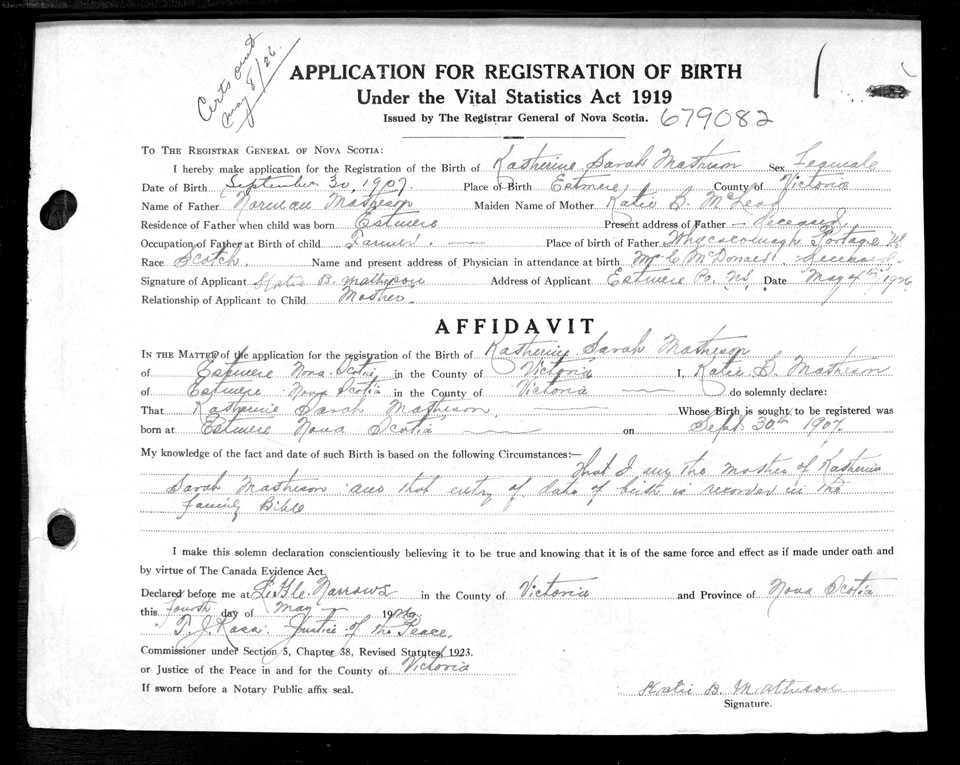 Certs sent
May 8/26.
APPLICATION FOR REGISTRATION OF BIRTH
Under the Vital Statistics Act 1919
Issued by The Registrar General of Nova Scotia. 679082
TO THE REGISTRAR GENERAL OF NOVA SCOTIA:
I hereby make application for the Registration of the Birth of Katherine Sarah Matheson Sex Female
Date of Birth September 30, 1907. Place of Birth Estmere, County of Victoria
Name of Father Norman Matheson Maiden Name of Mother Katie B. McLeod
Residence of Father when child was born Estmere Present address of Father – deceased.
Occupation of Father at Birth of child Farmer. — Place of birth of Father Whycocomagh Portage NS
Race Scotch. Name and present address of Physician in attendance at birth McDonald. deceased.
Signature of Applicant Katie B. Matheson Address of Applicant Estmere Po. NS, Date May 4th, 1926
Relationship of Applicant to Child Mother.
AFFIDAVIT
IN THE MATTER of the application for the registration of the Birth of Katherine Sarah Matheson
of Estmere Nova Scotia in the County of Victoria I, Katie B. Matheson
of Estmere Nova Scotia in the County of Victoria — do solemnly declare:
That Katherine Sarah Matheson, — Whose Birth is sought to be registered was
born at Estmere Nova Scotia — on Sept 30th 1907.
My knowledge of the fact and date of such Birth is based on the following Circumstances:— That I am the mother of Katherine
Sarah Matheson and that entry of date of birth is recorded in the
family Bible
I make this solemn declaration conscientiously believing it to be true and knowing that it is of the same force and effect as if made under oath and
by virtue of The Canada Evidence Act.
Declared before me at Little Narrows in the County of Victoria and Province of Nova Scotia
this Fourth day of May 1926.
Justice of the Peace.
Commissioner under Section 5, Chapter 38, Revised Statutes, 1923.
or Justice of the Peace in and for the County of Victoria
If sworn before a Notary Public affix seal.
Katie B. Matheson
Signature.